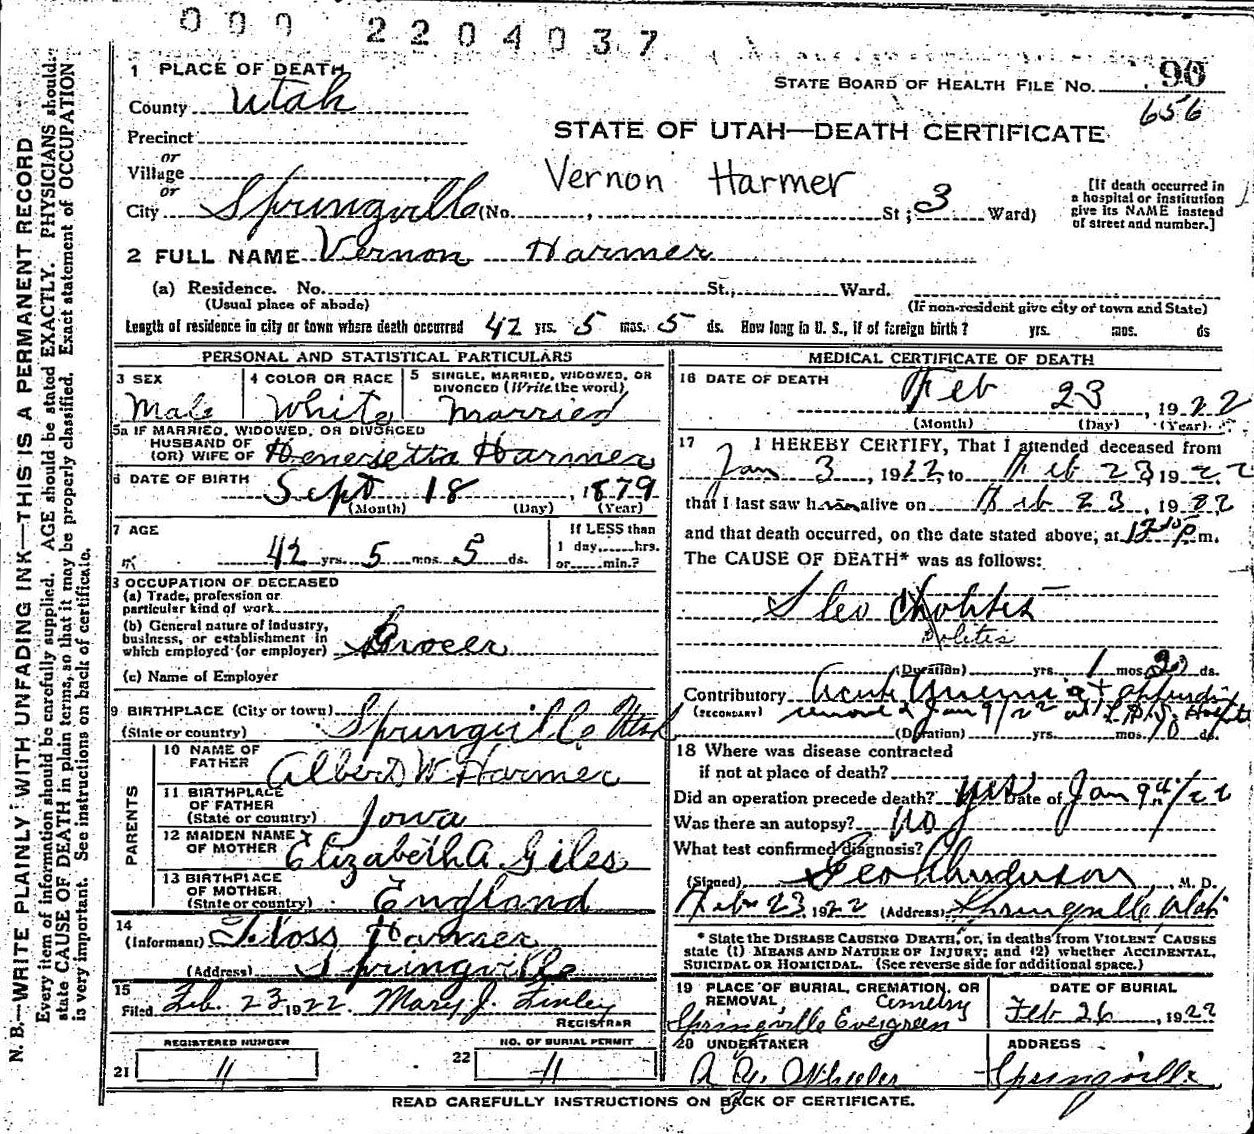 000 2204037
1 PLACE OF DEATH
STATE BOARD OF HEALTH FILE NO. 90
656
County Utah
STATE OF UTAH—DEATH CERTIFICATE
Precinct
or
Village
Vernon Harmer
or
City Springville (No. , St; 3 Ward)
[If death occurred in
a hospital or institution
give its NAME instead
of street and number.]
2 FULL NAME Vernon Harmer
(a) Residence. No. St., Ward.
(Usual place of abode) (If non-resident give city of town and State)
Length of residence in city or town where death occurred 42 yrs. 5 mos. 5 ds. How long in U. S., if of foreign birth? yrs. mos. ds
PERSONAL AND STATISTICAL PARTICULARS
3 SEX Male
4 COLOR OR RACE White
5 SINGLE, MARRIED, WIDOWED, OR
DIVORCED (Write the word)
married
5a IF MARRIED, WIDOWED, OR DIVORCED
HUSBAND OF
(OR) WIFE OF Henersetta Harmer
6 DATE OF BIRTH Sept 18, 1879
(Month) (Day) (Year)
7 AGE 42 yrs. 5 mos. 5 ds.
If LESS than
1 day, hrs.
or min.?
8 OCCUPATION OF DECEASED
(a) Trade, profession or
particular kind of work
(b) General nature of industry,
business, or establishment in
which employed (or employer) Grocer
(c) Name of Employer
9 BIRTHPLACE (City or town)
(State or country) Springville Utah
PARENTS
10 NAME OF
FATHER Albert W. Harmer
11 BIRTHPLACE
OF FATHER
(State or country) Iowa
12 MAIDEN NAME
OF MOTHER Elizabeth A. Giles
13 BIRTHPLACE
OF MOTHER
(State or country) England
14
(Informant) Floss Harmer
(Address) Springville
15
Filed Feb. 23 1922. Mary J. Finley
REGISTRAR
REGISTERED NUMBER
21 11
NO. OF BURIAL PERMIT
22 11
MEDICAL CERTIFICATE OF DEATH
16 DATE OF DEATH Feb 23, 1922
(Month) (Day) (Year)
17 I HEREBY CERTIFY, That I attended deceased from
Jan 3, 1922 to Feb 23 1922
that I last saw him alive on Feb 23, 1922
and that death occurred, on the date stated above, at 12 p. m.
The CAUSE OF DEATH* was as follows:
Ileo Cholitis
Colitis
(Duration) yrs. 1 mos. 20 ds.
Contributory Acute
(SECONDARY) removed Jan 9/22 at
(Duration) yrs. mos. 10 ds.
18 Where was disease contracted
if not at place of death?
Did an operation precede death? yes Date of Jan 9th/22
Was there an autopsy? no
What test confirmed diagnosis?
(Signed) Geo Anderson M. D.
Feb 23 1922 (Address) Springville Utah
* State the DISEASE CAUSING DEATH, or, in deaths from VIOLENT CAUSES
state (1) MEANS AND NATURE OF INJURY; and (2) whether ACCIDENTAL,
SUICIDAL OR HOMICIDAL. (See reverse side for additional space.)
19 PLACE OF BURIAL, CREMATION, OR
REMOVAL Cemetry
Springville Evergreen
DATE OF BURIAL
Feb 26, 1922
20 UNDERTAKER
A. Y. Wheeler
ADDRESS
Springville
READ CAREFULLY INSTRUCTIONS ON BACK OF CERTIFICATE.
N. B.—WRITE PLAINLY WITH UNFADING INK—THIS IS A PERMANENT RECORD
Every item of information should be carefully supplied. AGE should be stated EXACTLY. PHYSICIANS should
state CAUSE OF DEATH in plain terms, so that it may be properly classified. Exact statement of OCCUPATION
is very important. See instructions on back of certificate.